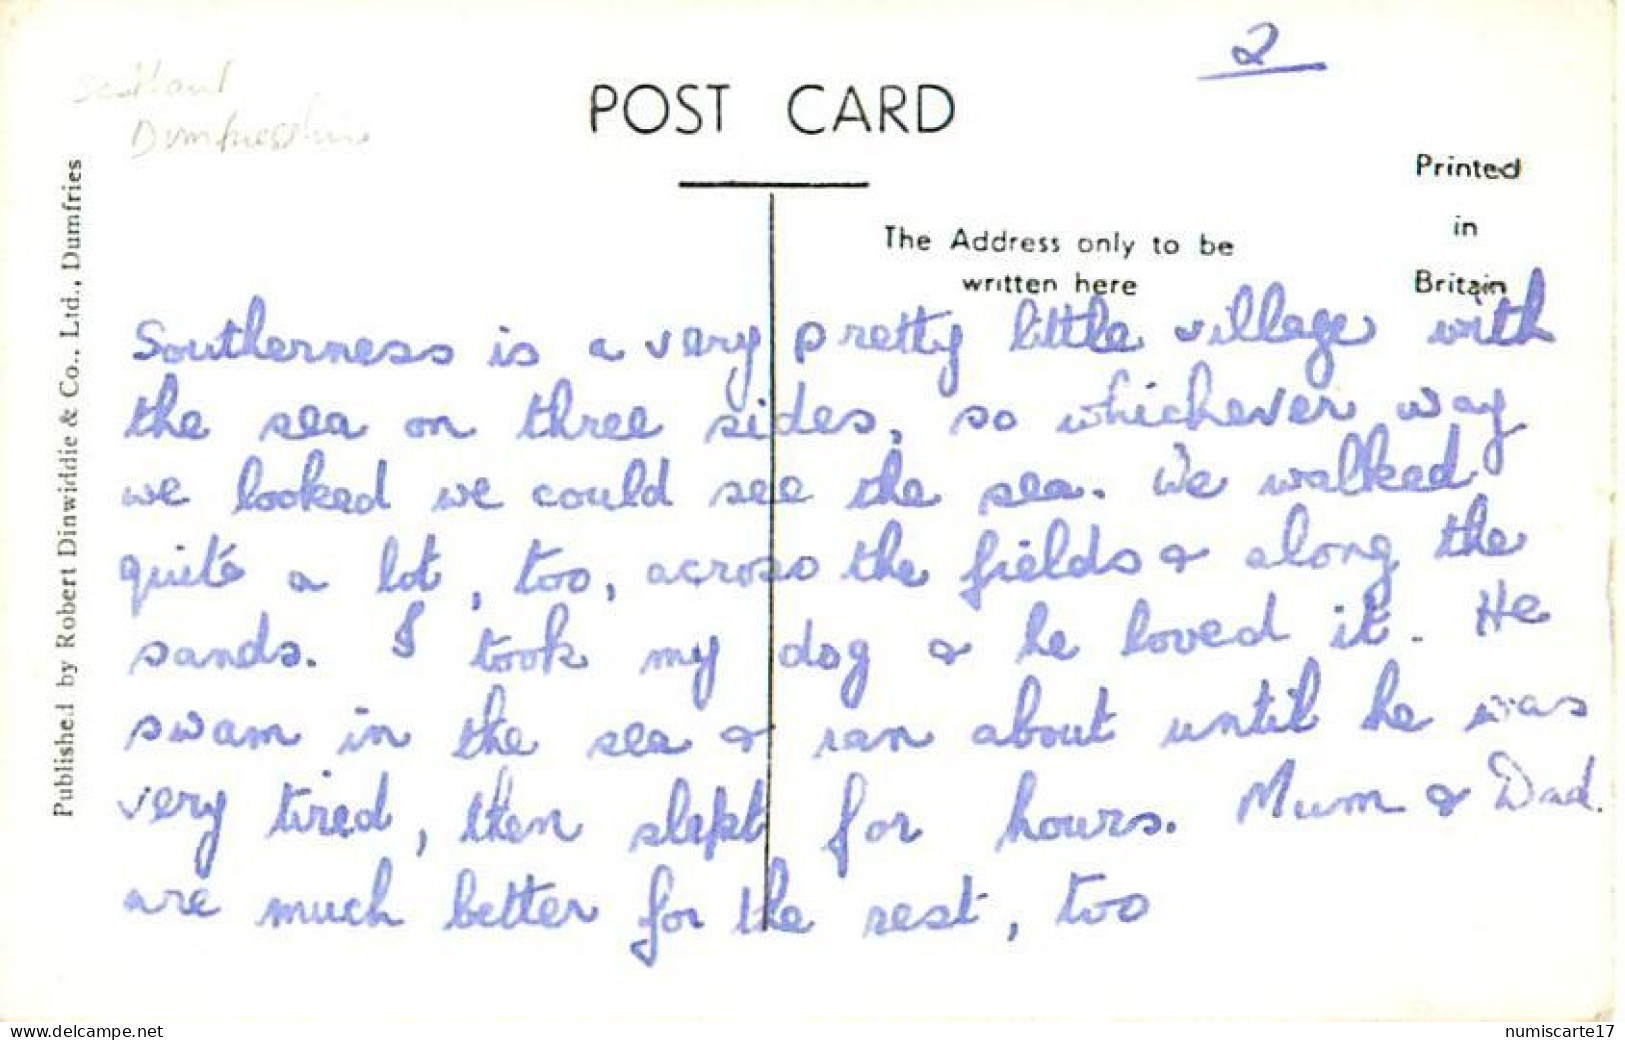 2
Scotland
Dumfriesshire
POST CARD
Printed
in
Britain
The Address only to be
written here
Published by Robert Dinwiddie & Co., Ltd., Dumfries
Southerness is a very pretty little village with
the sea on three sides, so whichever way
we looked we could see the sea. We walked
quite a lot, too, across the fields & along the
sands. I took my dog & he loved it. He
swam in the sea & ran about until he was
very tired, then slept for hours. Mum & Dad.
are much better for the rest, too
www.delcampe.net
numiscarte17